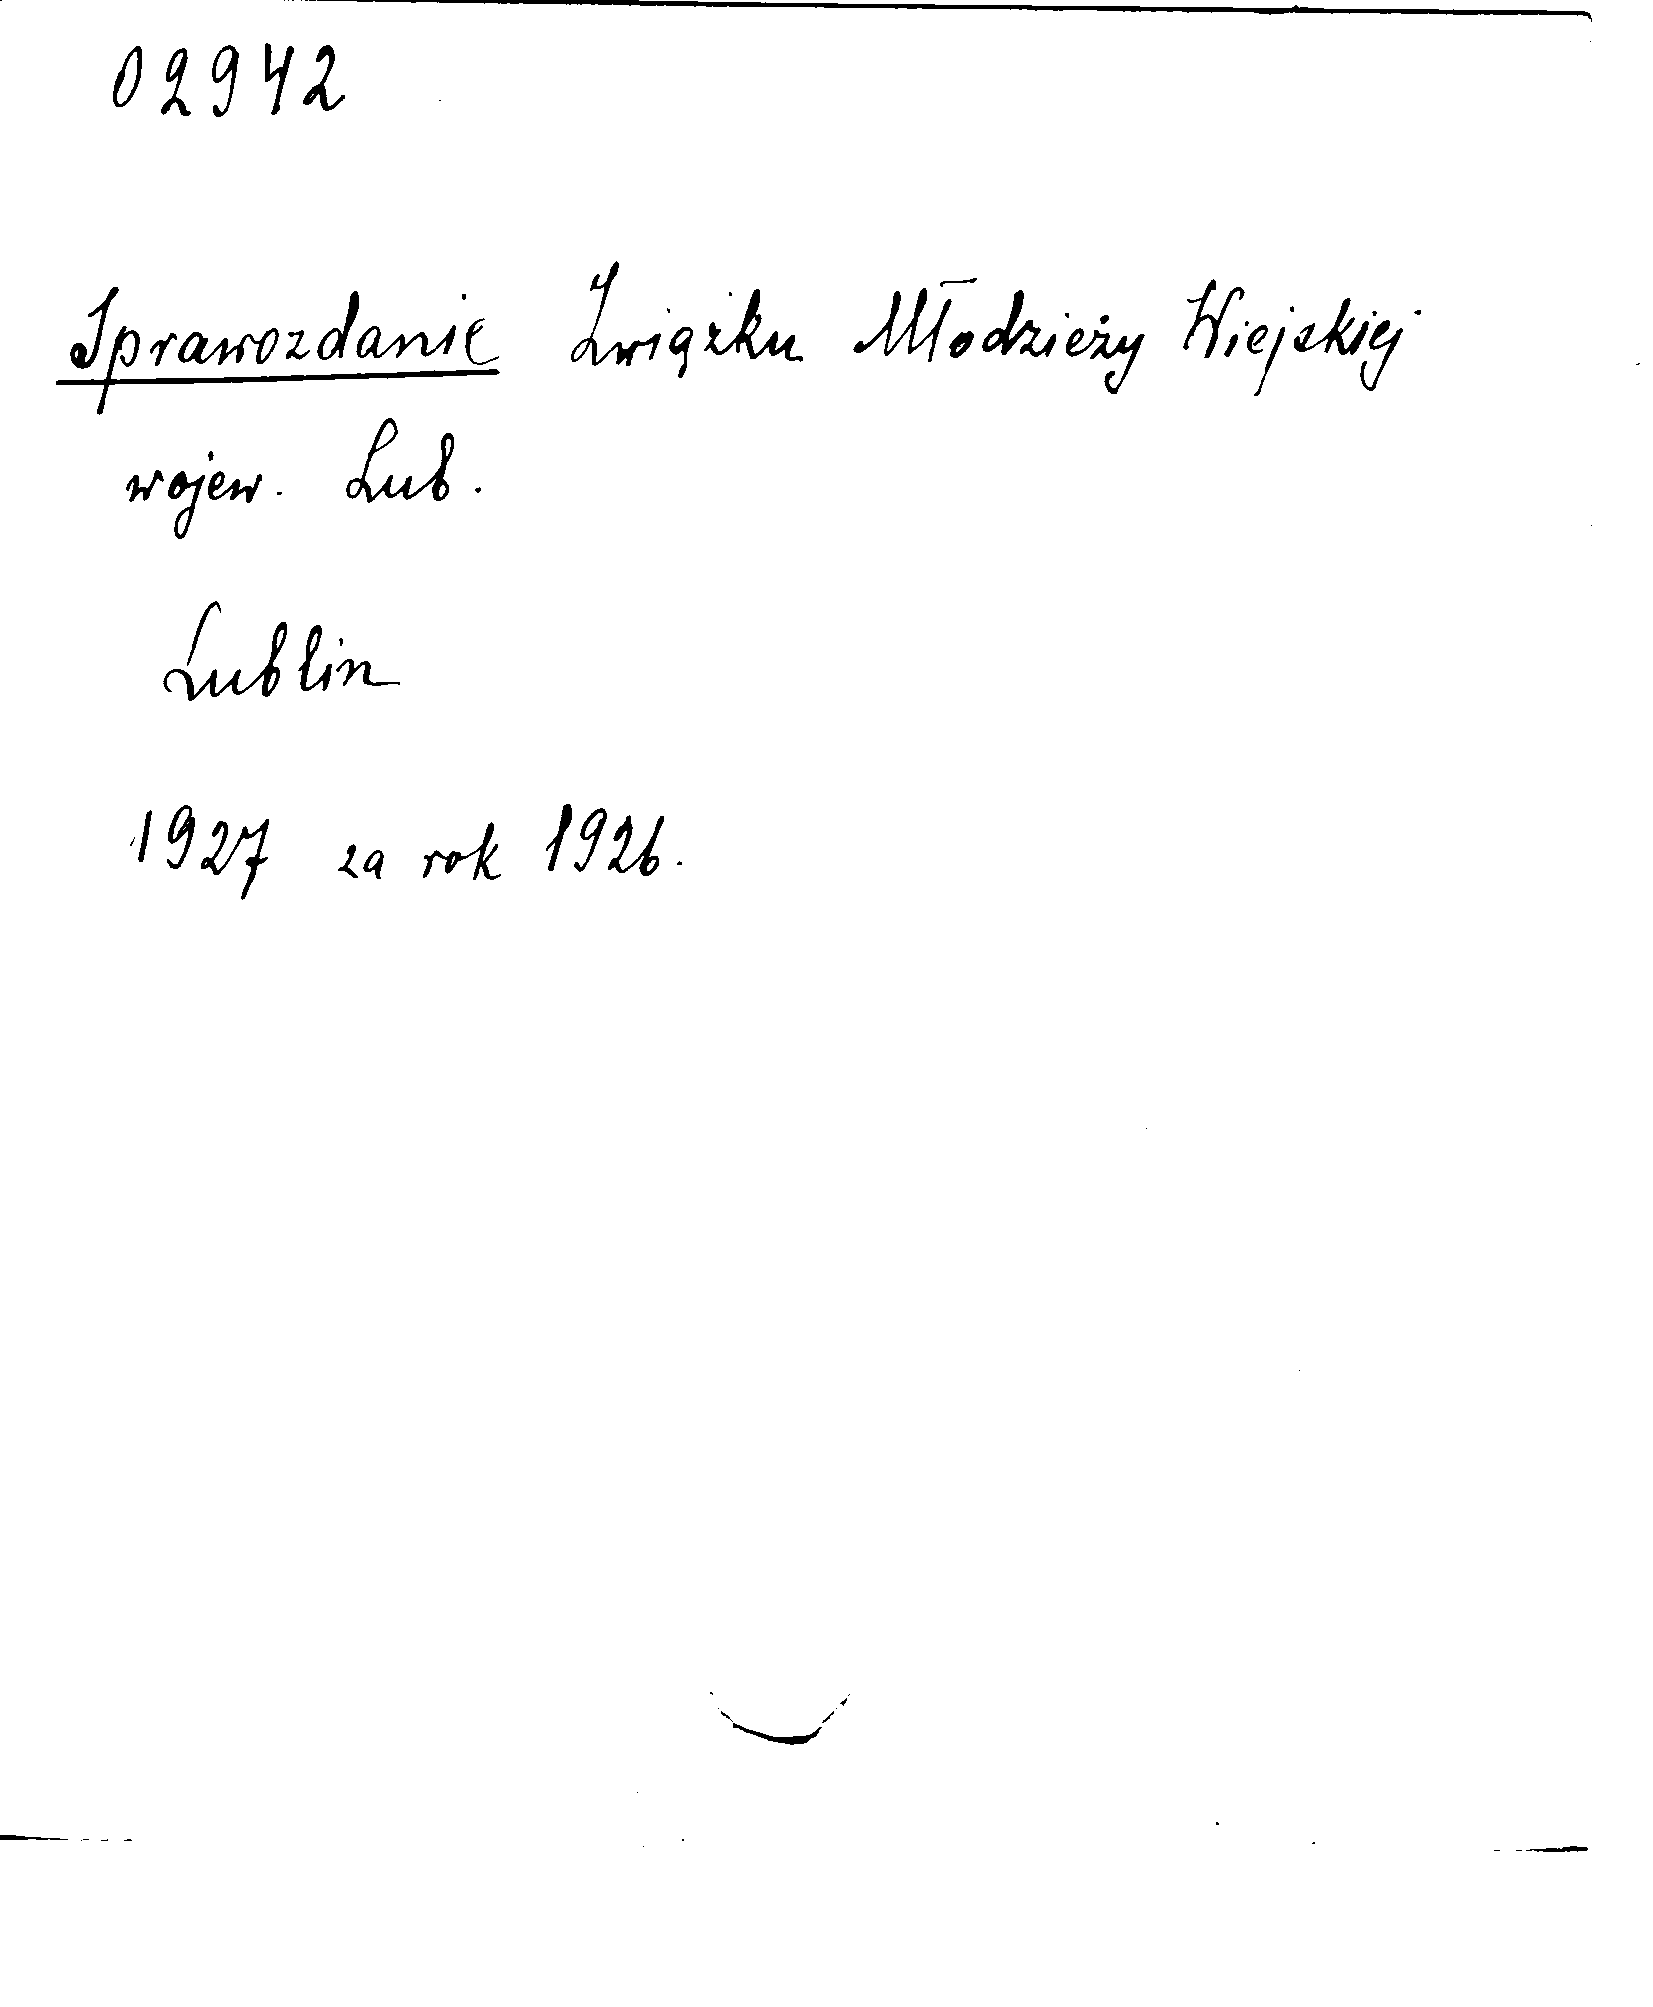 02942
Sprawozdanie Związku Młodzieży Wiejskiej
wojew. Lub.
Lublin
1927 za rok 1926.